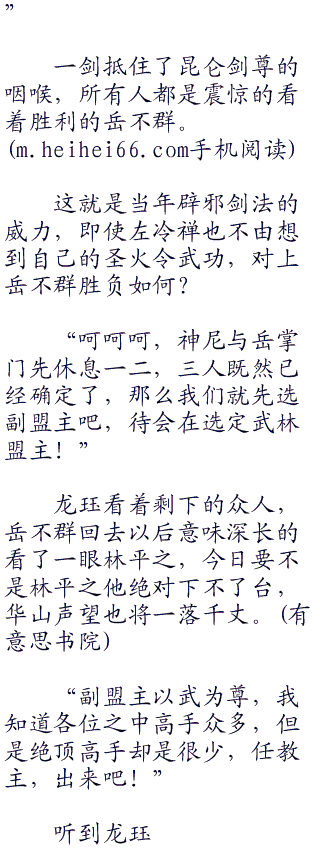 ”
一剑抵住了昆仑剑尊的
咽喉，所有人都是震惊的看
着胜利的岳不群。
(m.heihei66.com手机阅读)
这就是当年辟邪剑法的
威力，即使左冷禅也不由想
到自己的圣火令武功，对上
岳不群胜负如何？
“呵呵呵，神尼与岳掌
门先休息一二，三人既然已
经确定了，那么我们就先选
副盟主吧，待会在选定武林
盟主！”
龙珏看着剩下的众人，
岳不群回去以后意味深长的
看了一眼林平之，今日要不
是林平之他绝对下不了台，
华山声望也将一落千丈。(有
意思书院)
“副盟主以武为尊，我
知道各位之中高手众多，但
是绝顶高手却是很少，任教
主，出来吧！”
听到龙珏